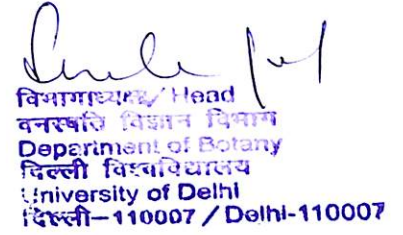 विभागाध्यक्ष/Head
वनस्पति विज्ञान विभाग
Department of Botany
दिल्ली विश्वविद्यालय
University of Delhi
दिल्ली-110007 / Delhi-110007